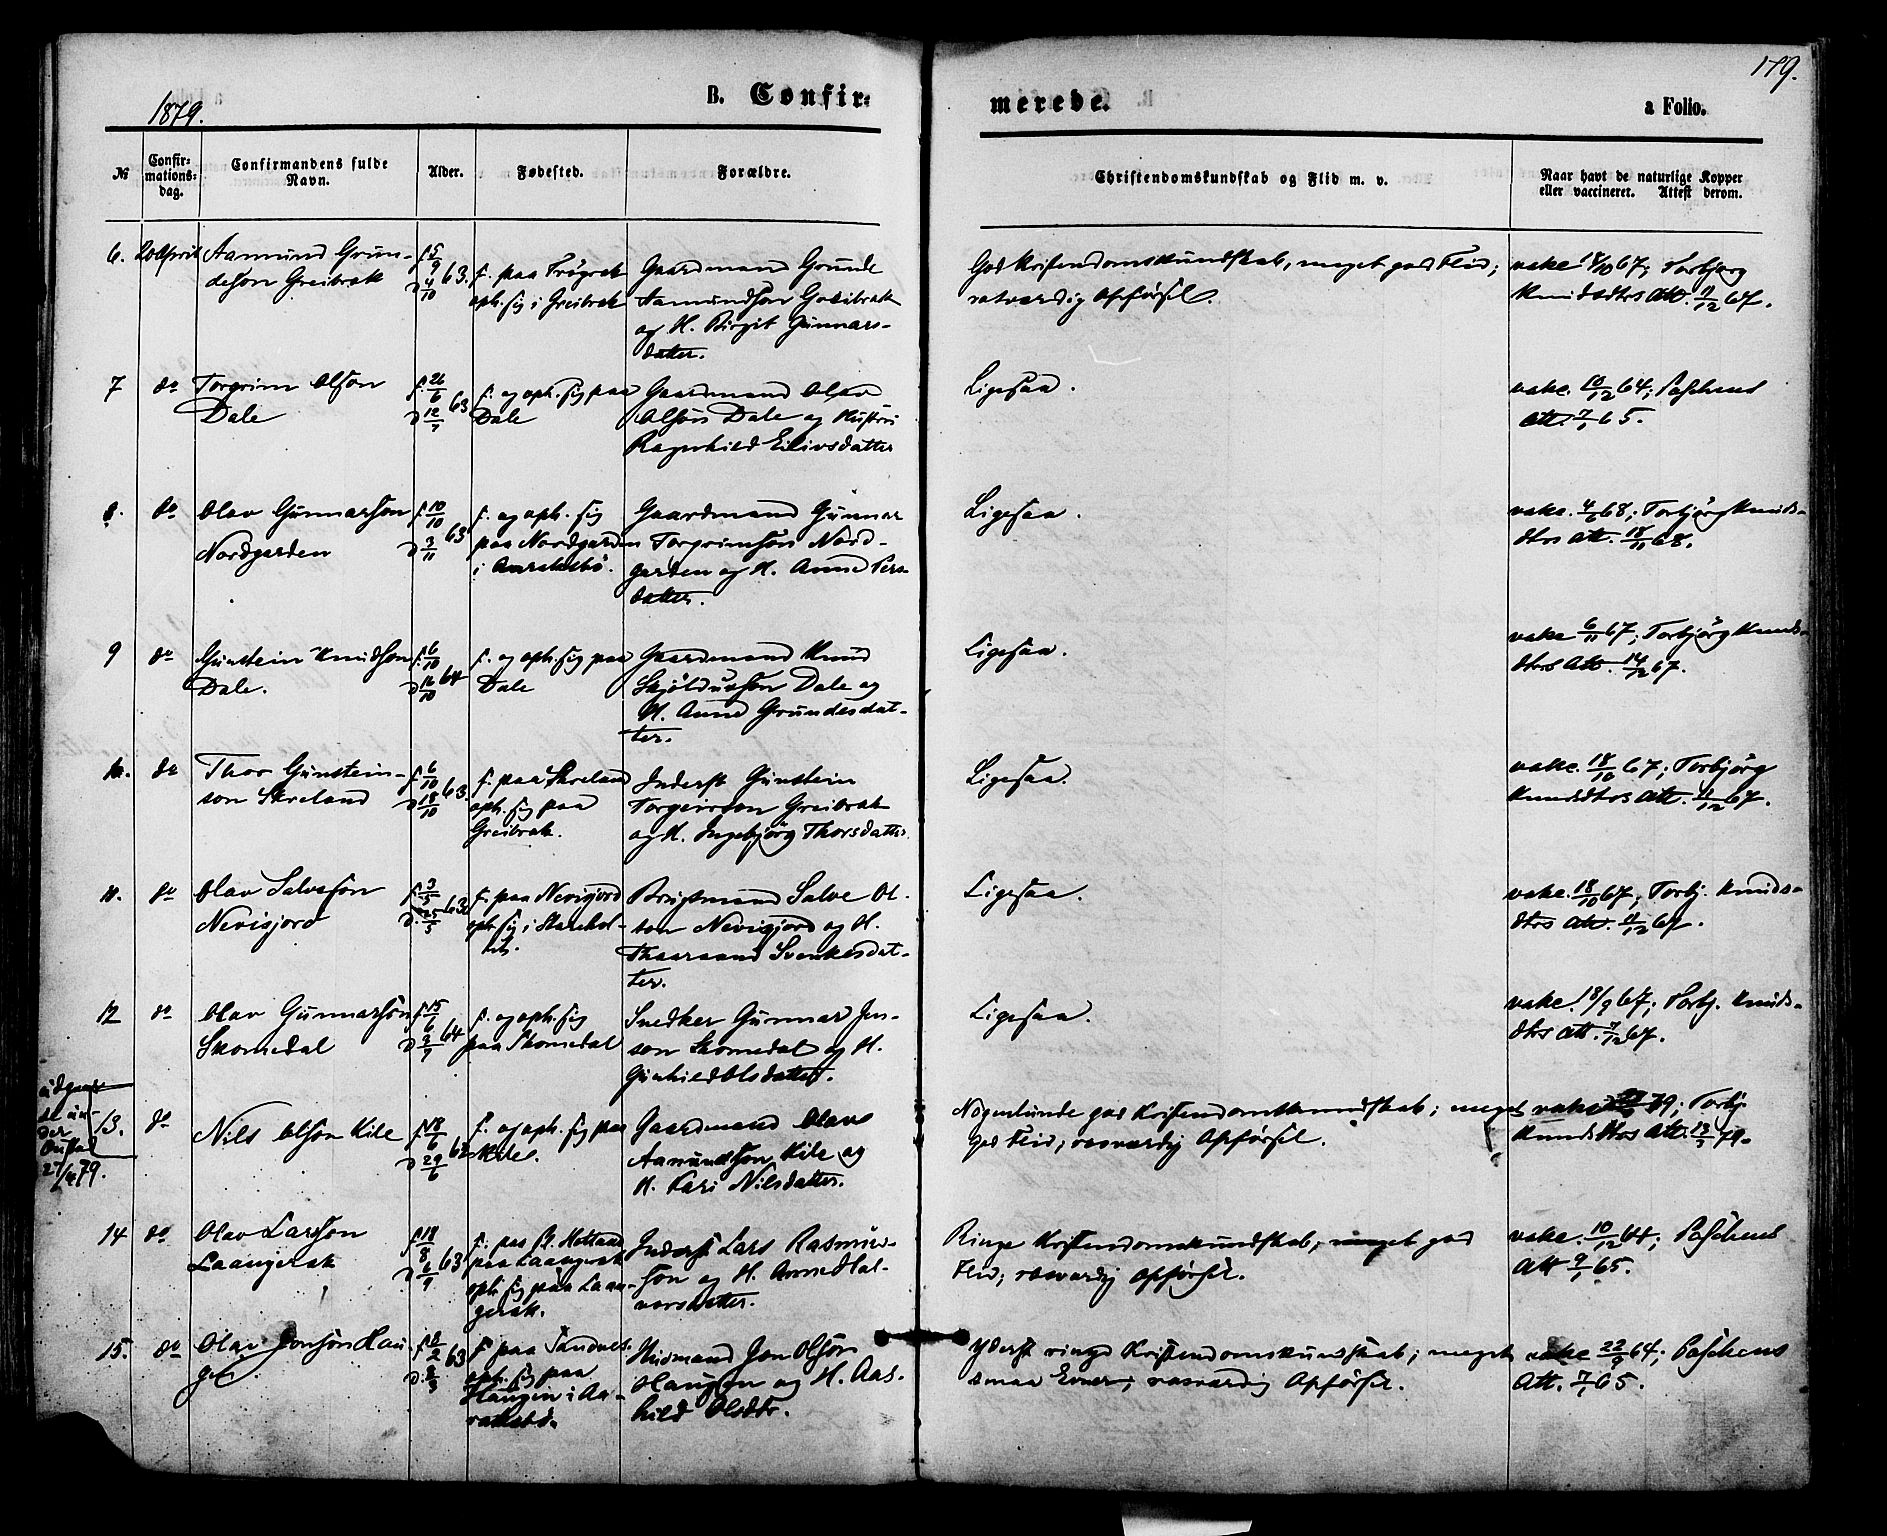 179.
1879.
B. Confir-
merede.
a Folio.
№
Confir-
mations-
dag.
Confirmandens fulde
Navn.
Alder.
Fødested.
Forældre.
Christendomskundskab og Flid m. v.
Naar havt de naturlige Kopper
eller vaccineret. Attest derom.
6. 20 April Aamund Grun-
deson Greibrok
f. 5/9 63. d. 4/10
f. paa
oph. sig i Greibrok
Gaardmand Grunde
Aamundson Greibrok
og H. Birgit Gunnars-
datter.
God Kristendomskundskab, meget god Flid;
rosværdig Opførsel.
vakc. 18/10 67; Torbjørg
Knudsdtrs Att. 11/12 67.
7 do Torgrim Olson
Dale
f. 26/6 63 d. 12/7
f. og oph. sig paa
Dale
Gaardmand Olav
Olson Dale og Hustru
Ragnhild Eilivsdatter
Ligesaa.
vakc. 10/12 64; Paschens
Att. 7/1 65.
8. do Olav Gunnarson
Nordgarden
f. 10/10 63 d. 3/11
f. og oph. sig
paa Nordgarden
i Aarakstbø.
Gaardmand Gunnar
Torgrimson Nord-
garden og H. Anne Pers-
datter.
Ligesaa.
vakc. 4/6 68; Torbjørg Knuds-
dtrs Att. 18/11 68.
9 do Gunstein Knudson
Dale.
f. 6/10 64 d. 16/10
f. og oph. sig paa
Dale
Gaardmand Knud
Skjoldulson Dale og
H. Anne Grundesdat-
ter.
Ligesaa.
vakc 6/11 67; Torbjørg Knuds-
dtrs Att. 14/12 67.
10. do Thor Gunstein-
son Skreland
f. 6/10 63. d. 18/10
f. paa Skreland
oph. sig paa
Greibrok.
Inderst Gunstein
Torgeirson Greibrok
og H. Ingebjørg Thorsdatter
Ligesaa.
vakc. 18/10 67; Torbjørg
Knudsdtrs Att. 11/12 67.
11. do Olav Salveson
Nevisjord
f. 3/5 63. d. 25/5
f. paa Nevisjord
oph. sig i
Brugsmand Salve Ol-
son Nevisjord og H.
Thaaraand Svenkesdat-
ter.
Ligesaa.
vakc. 18/10 67; Torbj. Knuds-
dtrs Att. 11/12 67.
12 do Olav Gunnarson
Skomedal
f. 15/6 64 d. 3/7
f. og oph. sig
paa Skomedal
Snedker Gunnar Jen-
son Skomedal og H.
Gunhild Olsdatter.
Ligesaa.
vakc. 18/9 67; Torbj. Knuds-
dtrs Att. 7/12 67.
udgaar-
de un-
der
27/4 79.
13. do Nils Olson Kile
f. 18/6 62 d. 29/6
f. og oph. sig paa
Kile.
Gaardmand Olav
Aamundson Kile og
H. Kari Nilsdatter.
Nogenlunde god Kristendomskundskab; meget
god Flid; rosværdig Opførsel.
vakc. 79; Torbj.
Knudsdtrs Att. 13/3 79.
14 do Olav Larson
Laangerak
f. 18/8 63 d. 6/9
f. paa Pl. Mostad
paa Laangerak
oph. sig paa Laan-
gerak.
Inderst Lars Rasmus-
son og H. Anne Hal-
vorsdatter.
Ringe Kristendomskundskab, meget god
Flid; rosværdig Opførsel.
vakc. 10/12 64; Paschens
Att 9/1 65.
15. do Olav Jonson Hau-
gen.
f. 8/2 63 d. 8/3
f. paa Sandnes
oph. sig paa
Haugen i Aa-
rakstbø.
Husmand Jon Olson
Haugen og H. Aas-
hild Olsdtr.
Yderst ringe Kristendomskundskab; meget
smaa Evner; rosværdig Opførsel.
vakc 22/9 64; Paschens
Att. 7/1 65.